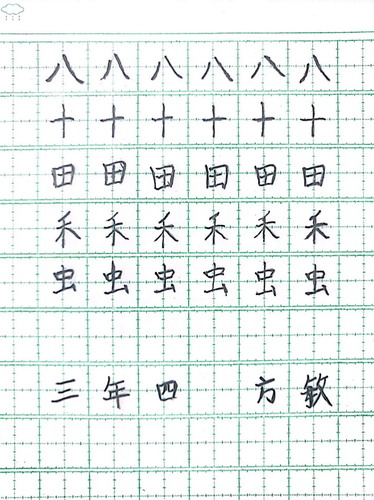 八八八八八八
十十十十十十
田田田田田田
禾禾禾禾禾禾
虫虫虫虫虫虫
三年四 方敏